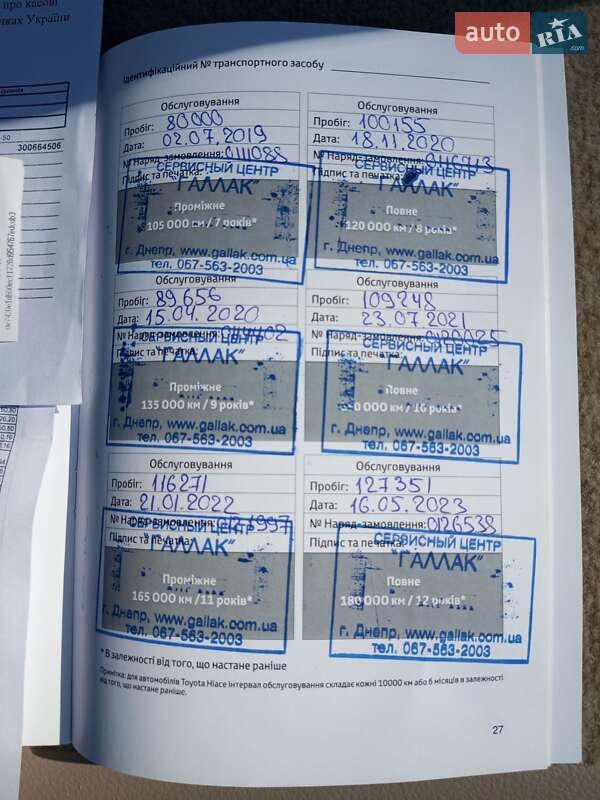 про касові
нках України
auto RIA.com
Ідентифікаційний № транспортного засобу
-50
300664506
Обслуговування
Пробіг: 80000
Дата: 02.07.2019
№ Наряд-замовлення: 0111088
Підпис та печатка:
СЕРВИСНЫЙ ЦЕНТР
"ГАЛЛАК"
Проміжне
105 000 км / 7 років*
г. Днепр, www.gallak.com.ua
тел. 067-563-2003
Обслуговування
Пробіг: 100155
Дата: 18.11.2020
№ Наряд-замовлення: 0116713
Підпис та печатка:
СЕРВИСНЫЙ ЦЕНТР
"ГАЛЛАК"
Повне
120 000 км / 8 років*
г. Днепр, www.gallak.com.ua
тел. 067-563-2003
Обслуговування
Пробіг: 89656
Дата: 15.04.2020
№ Наряд-замовлення:
Підпис та печатка:
СЕРВИСНЫЙ ЦЕНТР
"ГАЛЛАК"
Проміжне
135 000 км / 9 років*
г. Днепр, www.gallak.com.ua
тел. 067-563-2003
Обслуговування
Пробіг: 109248
Дата: 23.07.2021
№ Наряд-замовлення:
Підпис та печатка:
СЕРВИСНЫЙ ЦЕНТР
"ГАЛЛАК"
Повне
000 км / 10 років*
г. Днепр, www.gallak.com.ua
тел. 067-563-2003
Обслуговування
Пробіг: 116271
Дата: 21.01.2022
№ Наряд-замовлення:
Підпис та печатка:
СЕРВИСНЫЙ ЦЕНТР
"ГАЛЛАК"
Проміжне
165 000 км / 11 років*
г. Днепр, www.gallak.com.ua
тел. 067-563-2003
Обслуговування
Пробіг: 127351
Дата: 16.05.2023
№ Наряд-замовлення: 0126538
Підпис та печатка:
СЕРВИСНЫЙ ЦЕНТР
"ГАЛЛАК"
Повне
180 000 км / 12 років*
г. Днепр, www.gallak.com.ua
тел. 067-563-2003
* В залежності від того, що настане раніше
Примітка: для автомобілів Toyota Hiace інтервал обслуговування складає кожні 10000 км або 6 місяців в залежності
від того, що настане раніше.
27